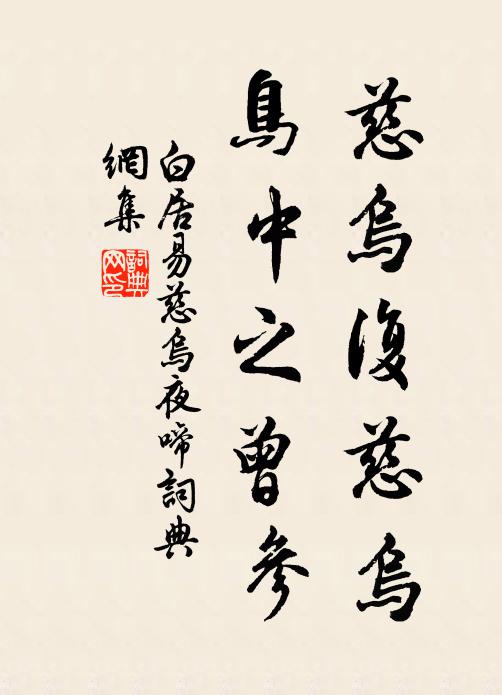 慈烏復慈烏
鳥中之曾參
白居易慈烏夜啼詞典
網集
詞典
网印